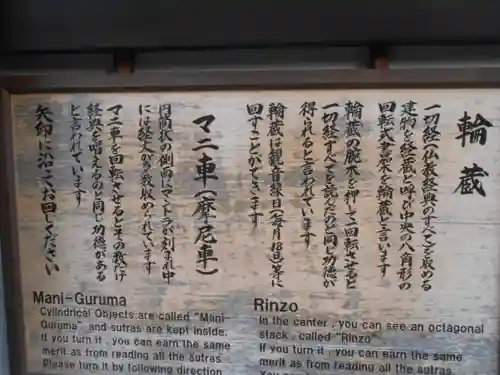 輪蔵
一切経(仏教経典のすべて)を収める
建物を経蔵と呼び中央の八角形の
回転式書架を輪蔵と言います
輪蔵の腕木を押して回転させると
一切経すべてを読んだのと同じ功徳が
得られると言われています
輪蔵は観音縁日(毎月18日)等に
回すことができます
マニ車(摩尼車)
円筒状の側面にマントラが刻まれ中
には経文が多数収められています
マニ車を回転させるとその数だけ
経典を唱えるのと同じ功徳がある
と言われています
矢印に沿ってお回しください
Mani-Guruma
Cylindrical Objects are called "Mani-
Guruma" and sutras are kept inside.
If you turn it , you can earn the same
merit as from reading all the sutras
Please turn it by following direction
Rinzo
In the center , you can see an octagonal
stack , called "Rinzo"
If you turn it , you can earn the same
merit as from reading all the sutras